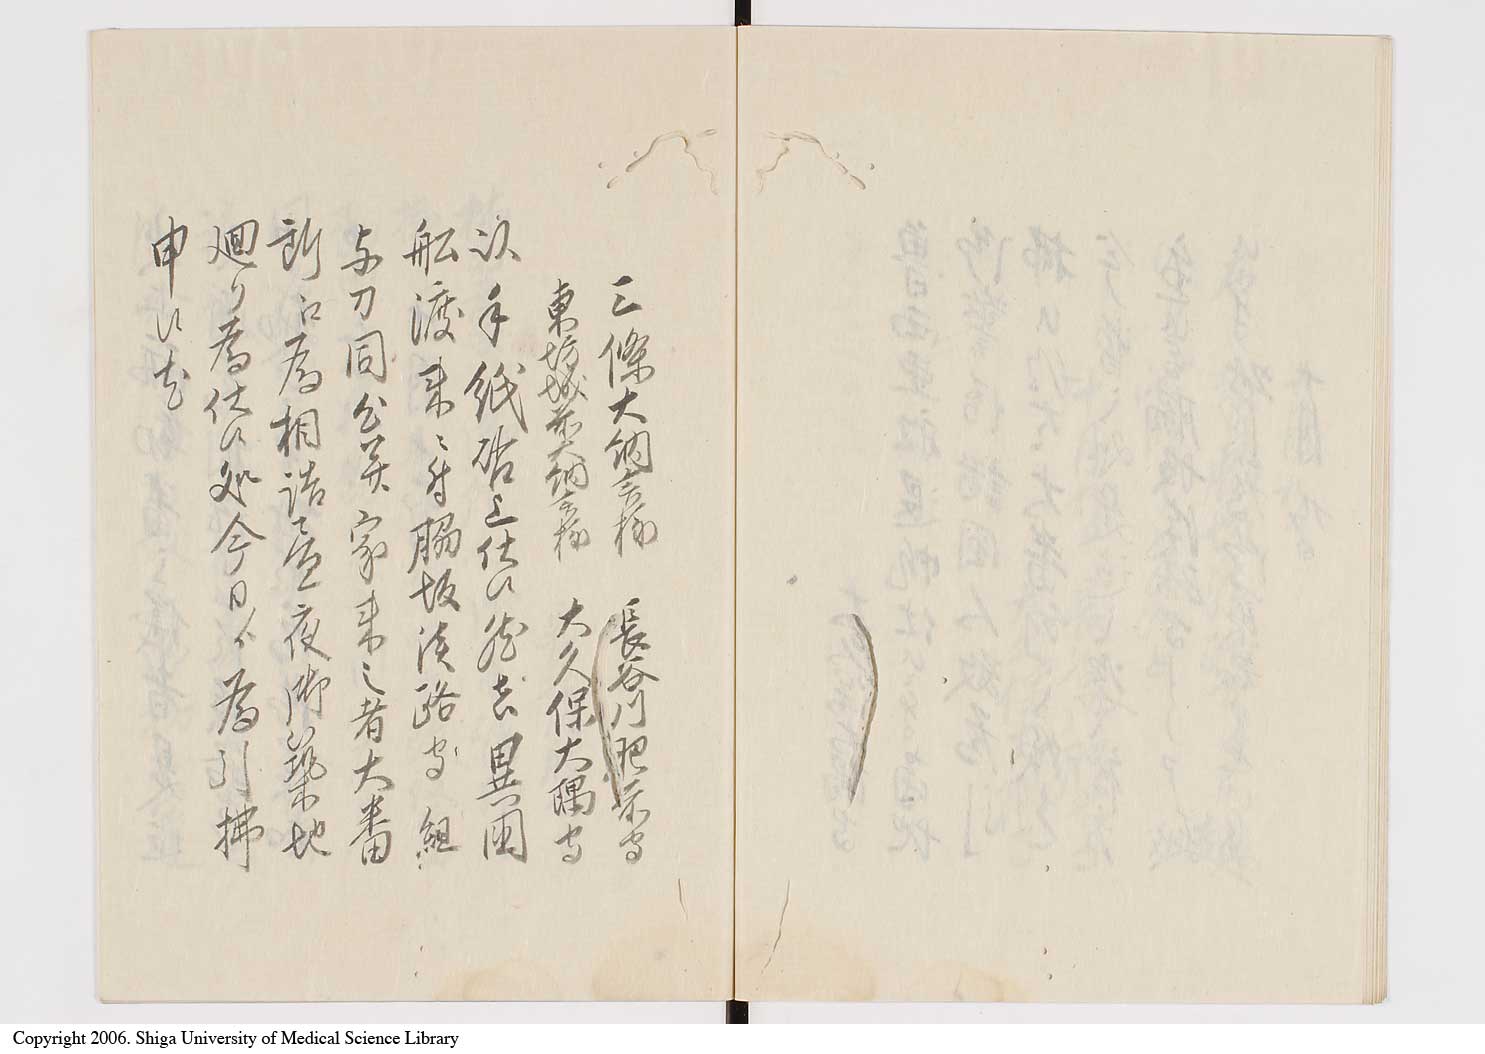 三條大納言様　長谷川肥前守
東坊城前大納言様　大久保大隅守
以手紙啓上仕候然者異国
船渡来ニ付脇坂淡路守組
与力同公箕家来之者大番
所江為相詰昼夜御築地
廻り為仕候処今日ゟ為引拂
申候尤
Copyright 2006. Shiga University of Medical Science Library